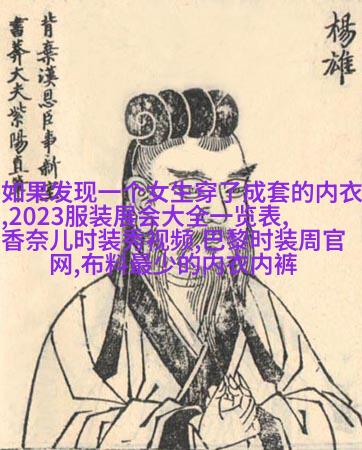 楊雄
背棄漢恩臣事新
書莽大夫紫陽直
如果发现一个女生穿了成套的内衣
,2023服装展会大全一览表,
香奈儿时装秀视频,巴黎时装周官
网,布料最少的内衣内裤